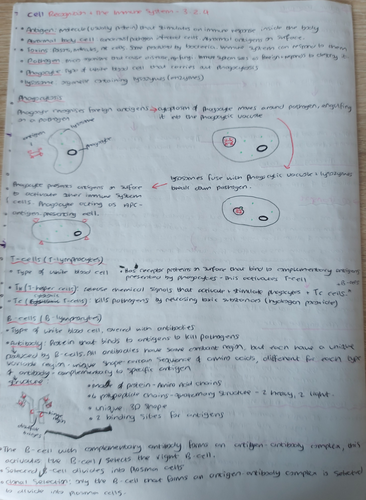 Cell Recognition + the Immune System - 3.2.4
• Antigen: Molecule (usually protein) that stimulates an immune response inside the body
• Abnormal body cell: cancerous/pathogen infected cells. Abnormal antigens on surface.
• Toxins: Poisons, which are not cells. Often produced by bacteria. Immune system can respond to them.
• Phagocyte: Type of white blood cell that carries out phagocytosis
• Lysosome: organelle containing lysozymes (enzymes)
Phagocytosis
Phagocyte recognises foreign antigens
on a pathogen
→ cytoplasm of phagocyte moves around pathogen, engulfing
it into the phagocytic vacuole
antigens
lysosome
phagocyte
Lysosomes fuse with phagocytic vacuole + lysozymes
break down pathogen.
Phagocyte presents antigens on surface
to activate other immune system
cells. Phagocyte acting as APC-
antigen-presenting cell.
T-cells (T-lymphocytes)
• Type of white blood cell
• Has receptor proteins on surface that bind to complementary antigens
presented by phagocytes - this activates T-cell
• TH (T-helper cells): release chemical signals that activate + stimulate phagocytes + Tc cells
• Tc (cytotoxic T-cells): kills pathogens by releasing toxic substances (hydrogen peroxide)
B-cells (B-lymphocytes)
• Type of white blood cell, covered with antibodies
• Antibody: Protein that binds to antigens to kill pathogens
produced by B-cells. All antibodies have same constant region, but each have a unique
variable region - unique shape + amino sequence of amino acids, different for each type
of antibody - complementary to specific antigen
Structure
• Made of protein - Amino acid chains
• 4 polypeptide chains - quaternary structure - 2 heavy, 2 light.
• Unique 3D shape
• 2 binding sites for antigens
• The B-cell with complementary antibody forms an antigen-antibody complex, this
activates the B-cell / selects the right B-cell.
• Selected B-cell divides into plasma cells
• Clonal selection: only the B-cell that forms an antigen-antibody complex is selected
to divide into plasma cells.